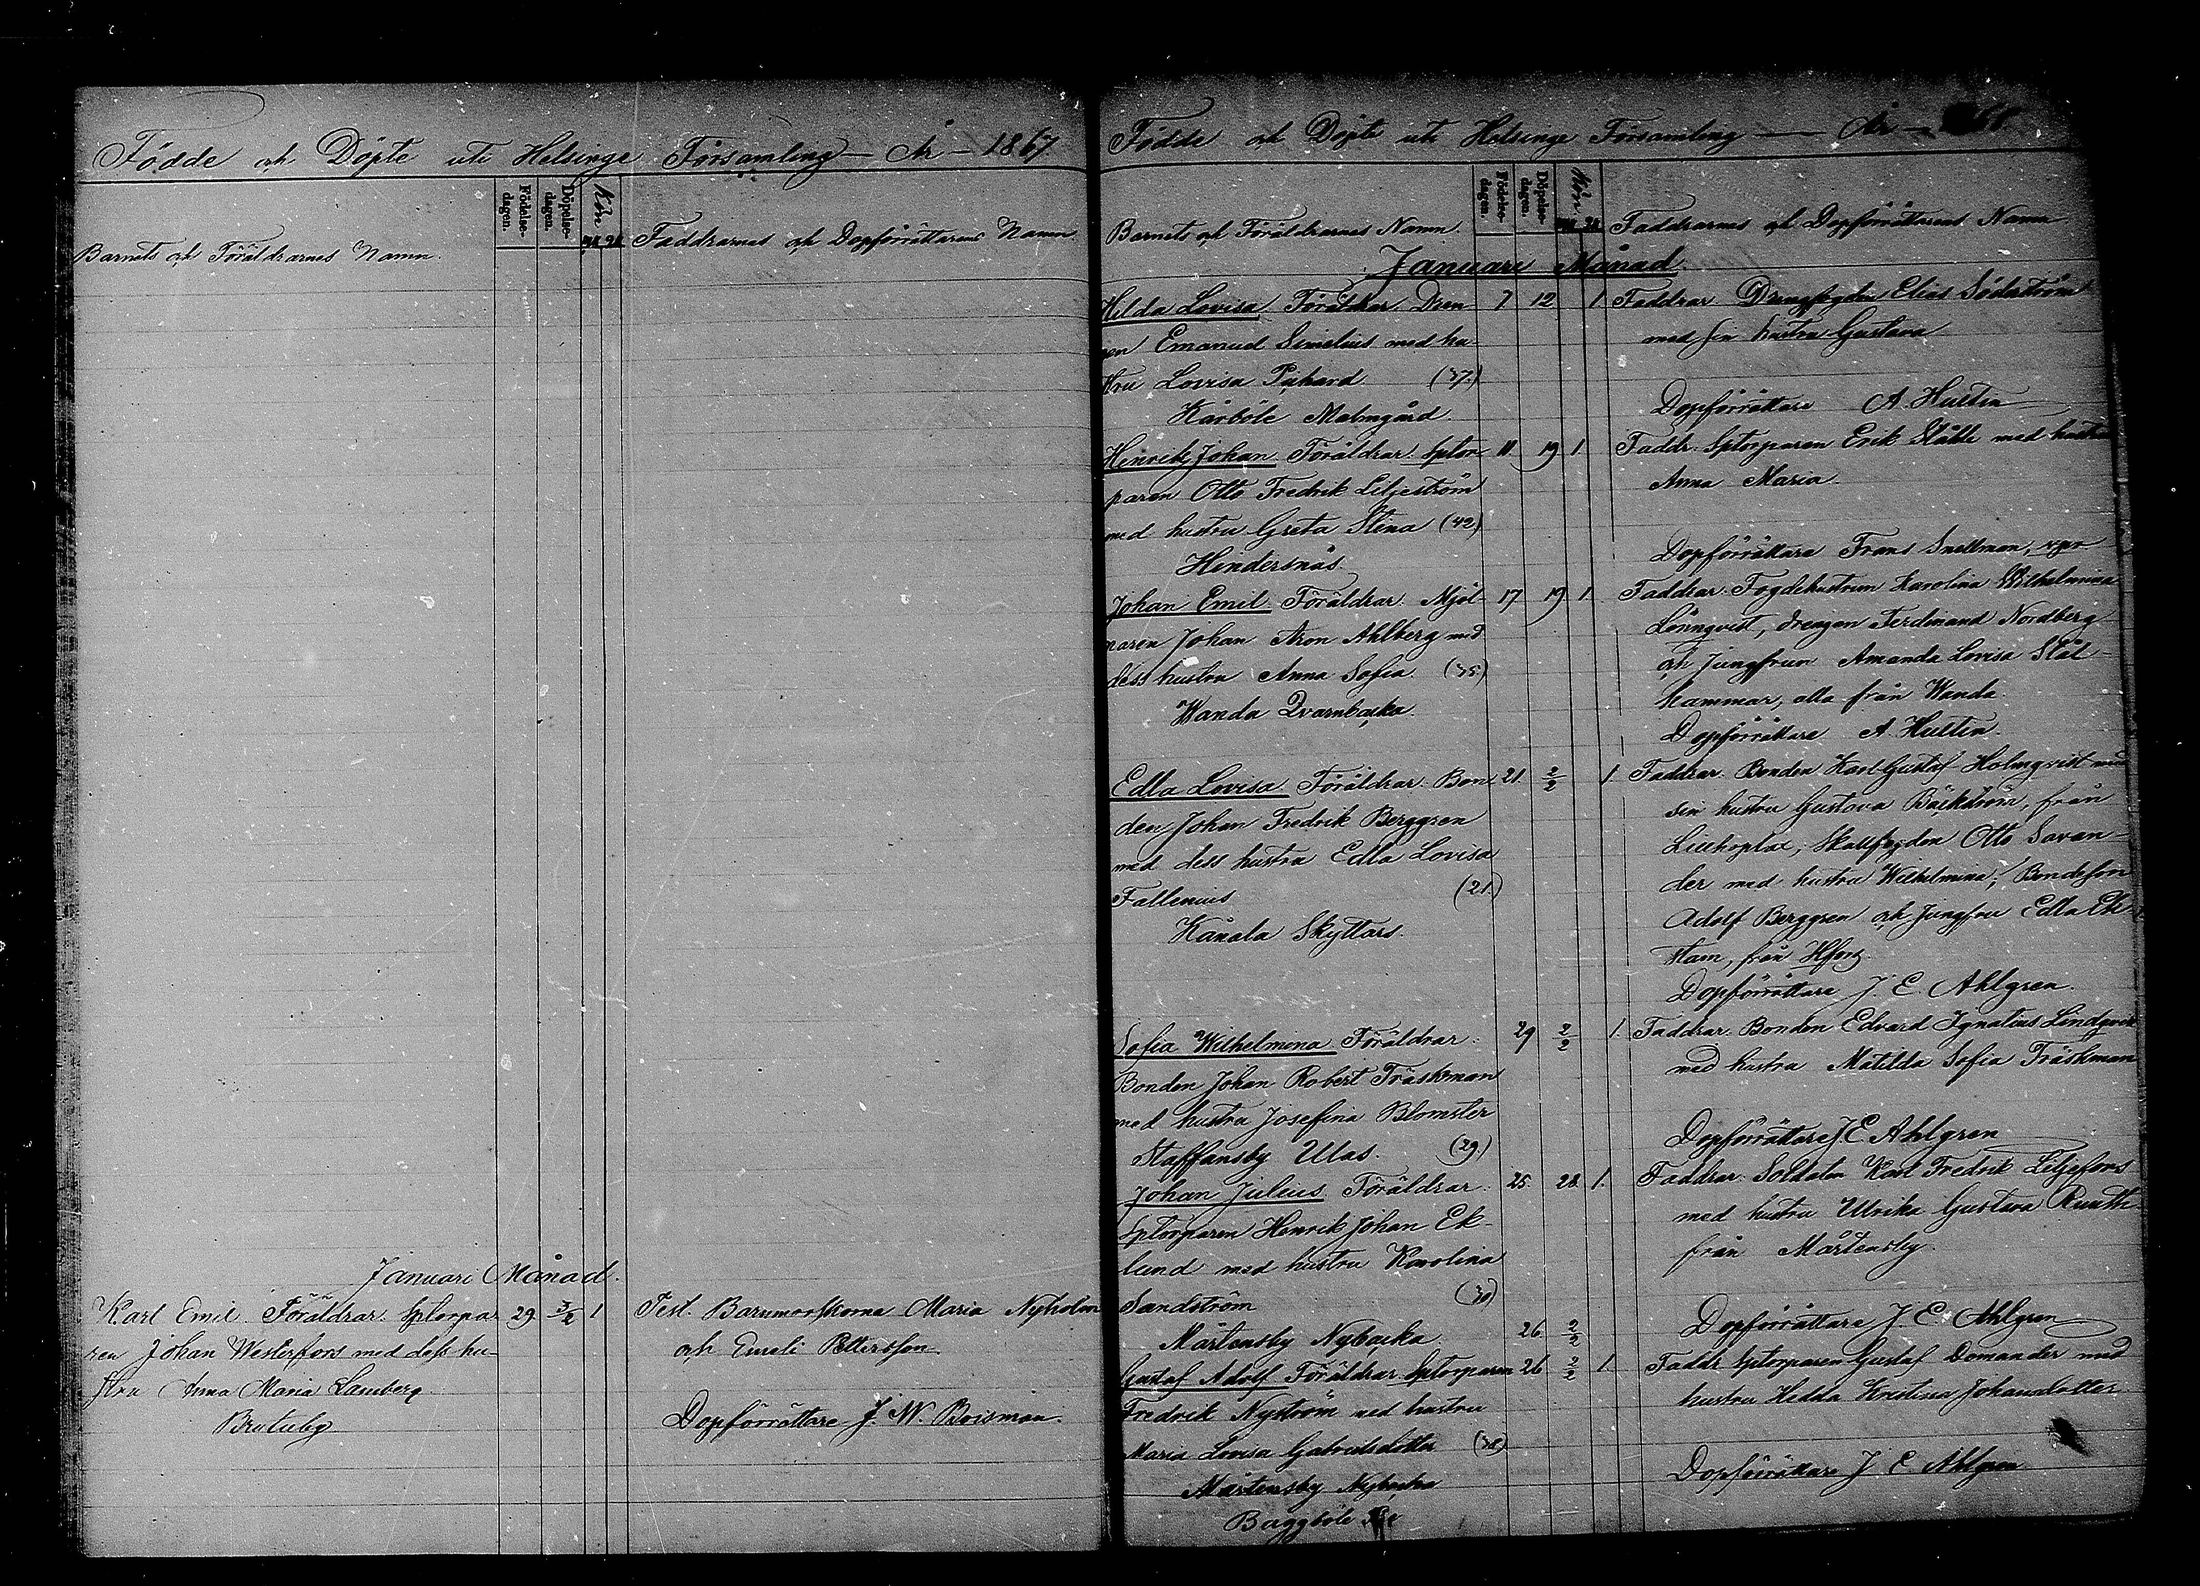 Födde och Döpte uti Helsinge Församling — År — 1867
Barnets och Föräldrarnes Namn.
Födelse-
dagen.
Döpelse-
dagen.
Kön
Faddrarnes och Dopförrättarens Namn
Januari Månad.
Karl Emil. Föräldrar. Sptorpa- 29 3/2 1 Test. Barnmorskorna Maria Nyholm
ren Johan Westerfors med dess hu- och Emeli Pettersson
stru Anna Maria Lamberg
Dopförrättare J. W. Boisman.
Födde och Döpte uti Helsinge Församling — År —
Barnets och Föräldrarnes Namn.
Födelse-
dagen.
Döpelse-
dagen.
Kön.
Faddrarnes och Dopförrättarens Namn
Januari Månad.
Hilda Lovisa Föräldrar. Dren- 7 12 1 Faddrar Drengfogden Elias Söderström
gen Emanuel Simelius med hu- med sin hustru Gustava
stru Lovisa (37.)
Kårböle Malmgård Dopförrättare A. Hultin
Henrik Johan Föräldrar. Sptor- 11 19 1 Faddr. Sptorparen Erik Ståhle med hustru
paren Otto Fredrik Liljeström Anna Maria
med hustru Greta Stina (42)
Hindersnäs. Dopförrättare Frans Snellman,
Johan Emil Föräldrar. Mjöl- 17 19 1 Faddrar. Fogdehustrun Karolina Wilhelmina
naren Johan Aron Ahlberg med Lönnqvist, drengen Ferdinand Nordberg
dess hustru Anna Sofia. (35) och Jungfrun Amanda Lovisa Stål-
Wanda Qvarnbacka. hammar, alla från Wanda.
Dopförrättare A. Hultin.
Edla Lovisa Föräldrar. Bon- 21. 2/2 1 Faddrar. Bonden Karl Gustaf Holmqvist med
den Johan Fredrik Berggren sin hustru Gustava Bäckström, från
med dess hustru Edla Lovisa Otto Savan-
Fallenius (21.) der med hustru Wilhelmina; Bondeson
Kånala Skyttars. Adolf Berggren och Jungfru Edla Ek-
stam, från Hfors.
Dopförrättare J. E. Ahlgren.
Sofia Wilhelmina Föräldrar. 29 2/2 1. Faddrar. Bonden Edvard Ignatius Lindqvist
Bonden Johan Robert Träskman med hustru Matilda Sofia Träskman
med hustru Josefina Blomster
Staffansby Ulas. (29.) Dopförrättare J E Ahlgren
Johan Julius Föräldrar. 25. 28 1. Faddrar. Soldaten Karl Fredrik Liljefors
Sptorparen Henrik Johan Ek- med hustru Ulrika Gustava Ruuth
lund med hustru Karolina från Mårtensby.
Sandström (30)
Mårtensby Nybacka. 26. 2/2 Dopförrättare J. E. Ahlgren
Gustaf Adolf Föräldrar Sptorparen 26 2/2 1. Faddr. Sptorparen Gustaf Domander med
Fredrik Nyström med hustru hustru Hedda Kristina Johansdotter
Maria Lovisa Gabrielsdotter (38)
Mårtensby Nybacka Dopförrättare J E Ahlgren
Baggböle